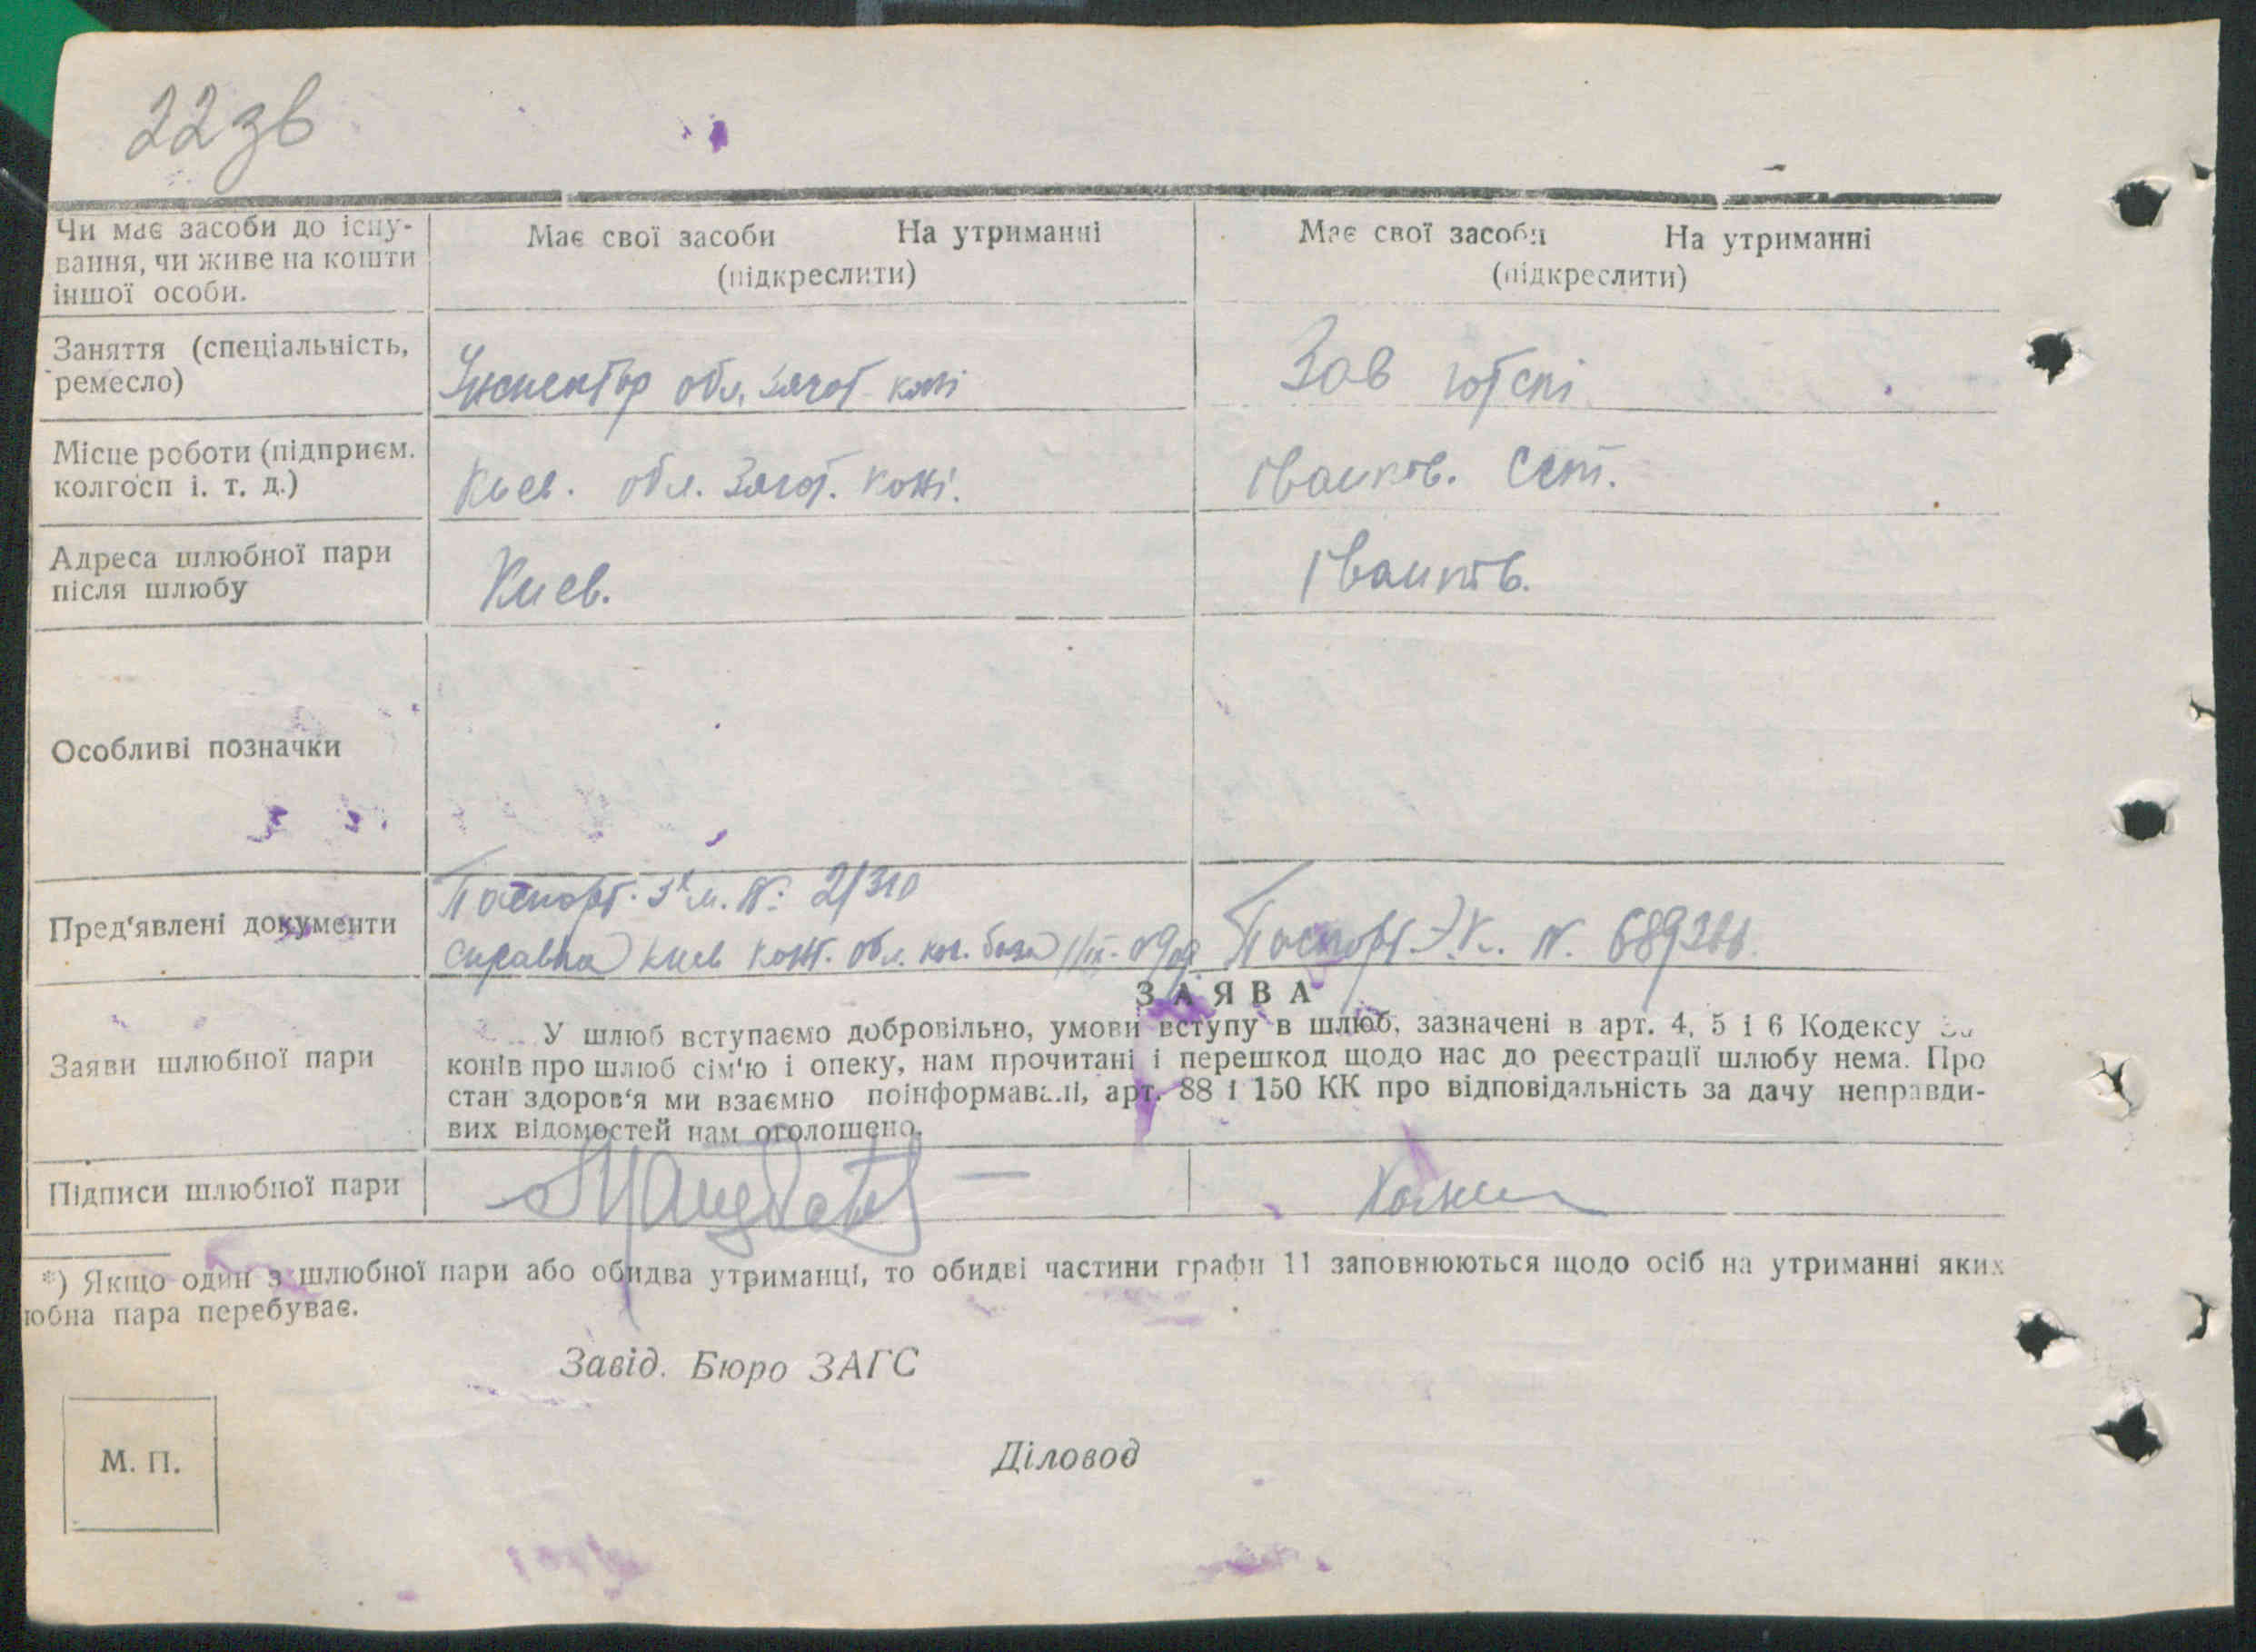 22зв
Чи має засоби до існу-
вання, чи живе на кошти
іншої особи.
Має свої засоби На утриманні
(підкреслити)
Має свої засоби На утриманні
(підкреслити)
Заняття (спеціальність,
ремесло)
Інспектор обл. загот кожі
Зав
Місце роботи (підприєм.
колгосп і. т. д.)
Киев. обл. Загот. кожі.
Іванків.
Адреса шлюбної пари
після шлюбу
Киев.
Іванків.
Особливі позначки
Пред'явлені документи
Паспорт. № 2/310
справка киев кож. обл. база
Паспорт. N.
ЗАЯВА
Заяви шлюбної пари
У шлюб вступаємо добровільно, умови вступу в шлюб, зазначені в арт. 4, 5 і 6 Кодексу За
конів про шлюб сім'ю і опеку, нам прочитані і перешкод щодо нас до реєстрації шлюбу нема. Про
стан здоров'я ми взаємно поінформавані, арт. 88 і 150 КК про відповідальність за дачу неправди-
вих відомостей нам оголошено.
Підписи шлюбної пари
*) Якщо один з шлюбної пари або обидва утриманці, то обидві частини графи 11 заповнюються щодо осіб на утриманні яких
юбна пара перебуває.
Завід. Бюро ЗАГС
Діловод
М. П.